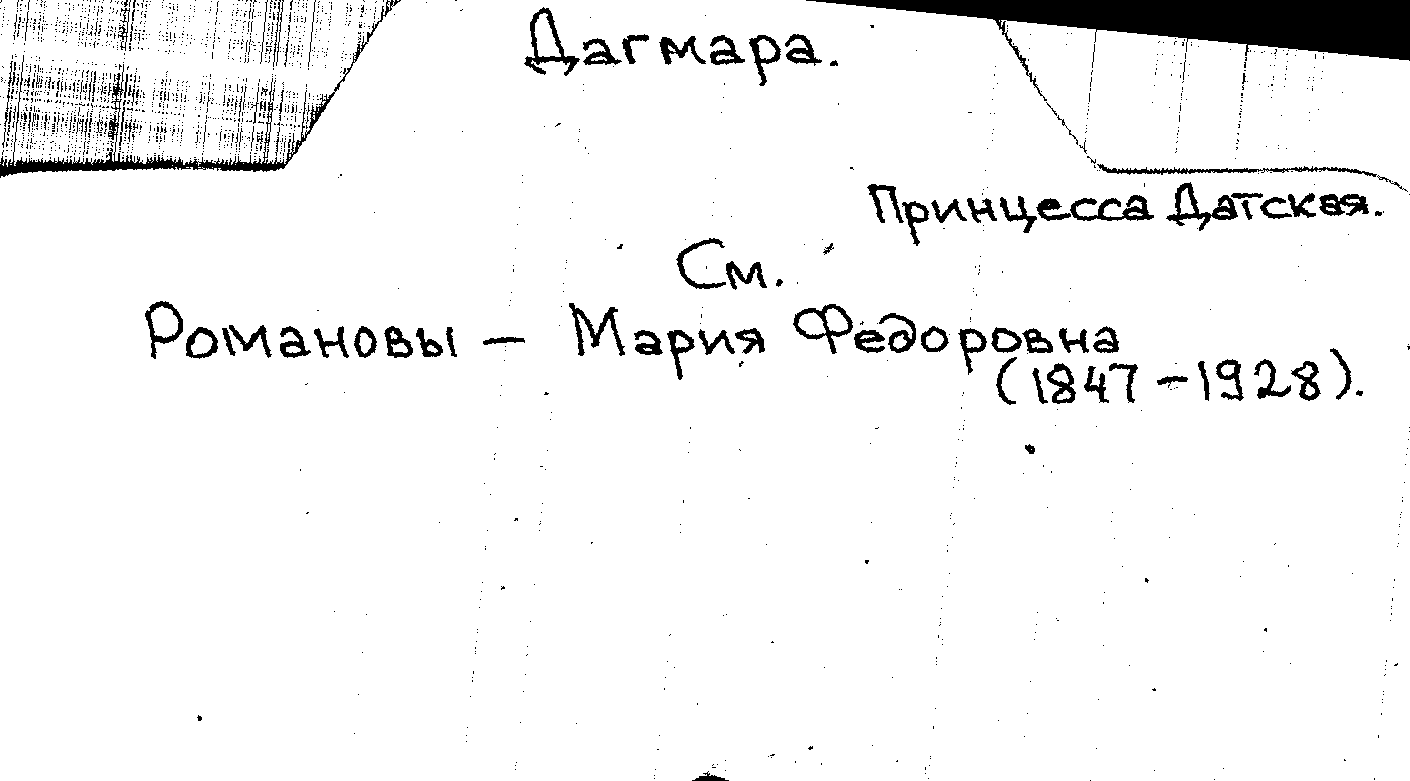 Дагмара.
Принцесса Датская.
См.
Романовы – Мария Федоровна
(1847 – 1928).